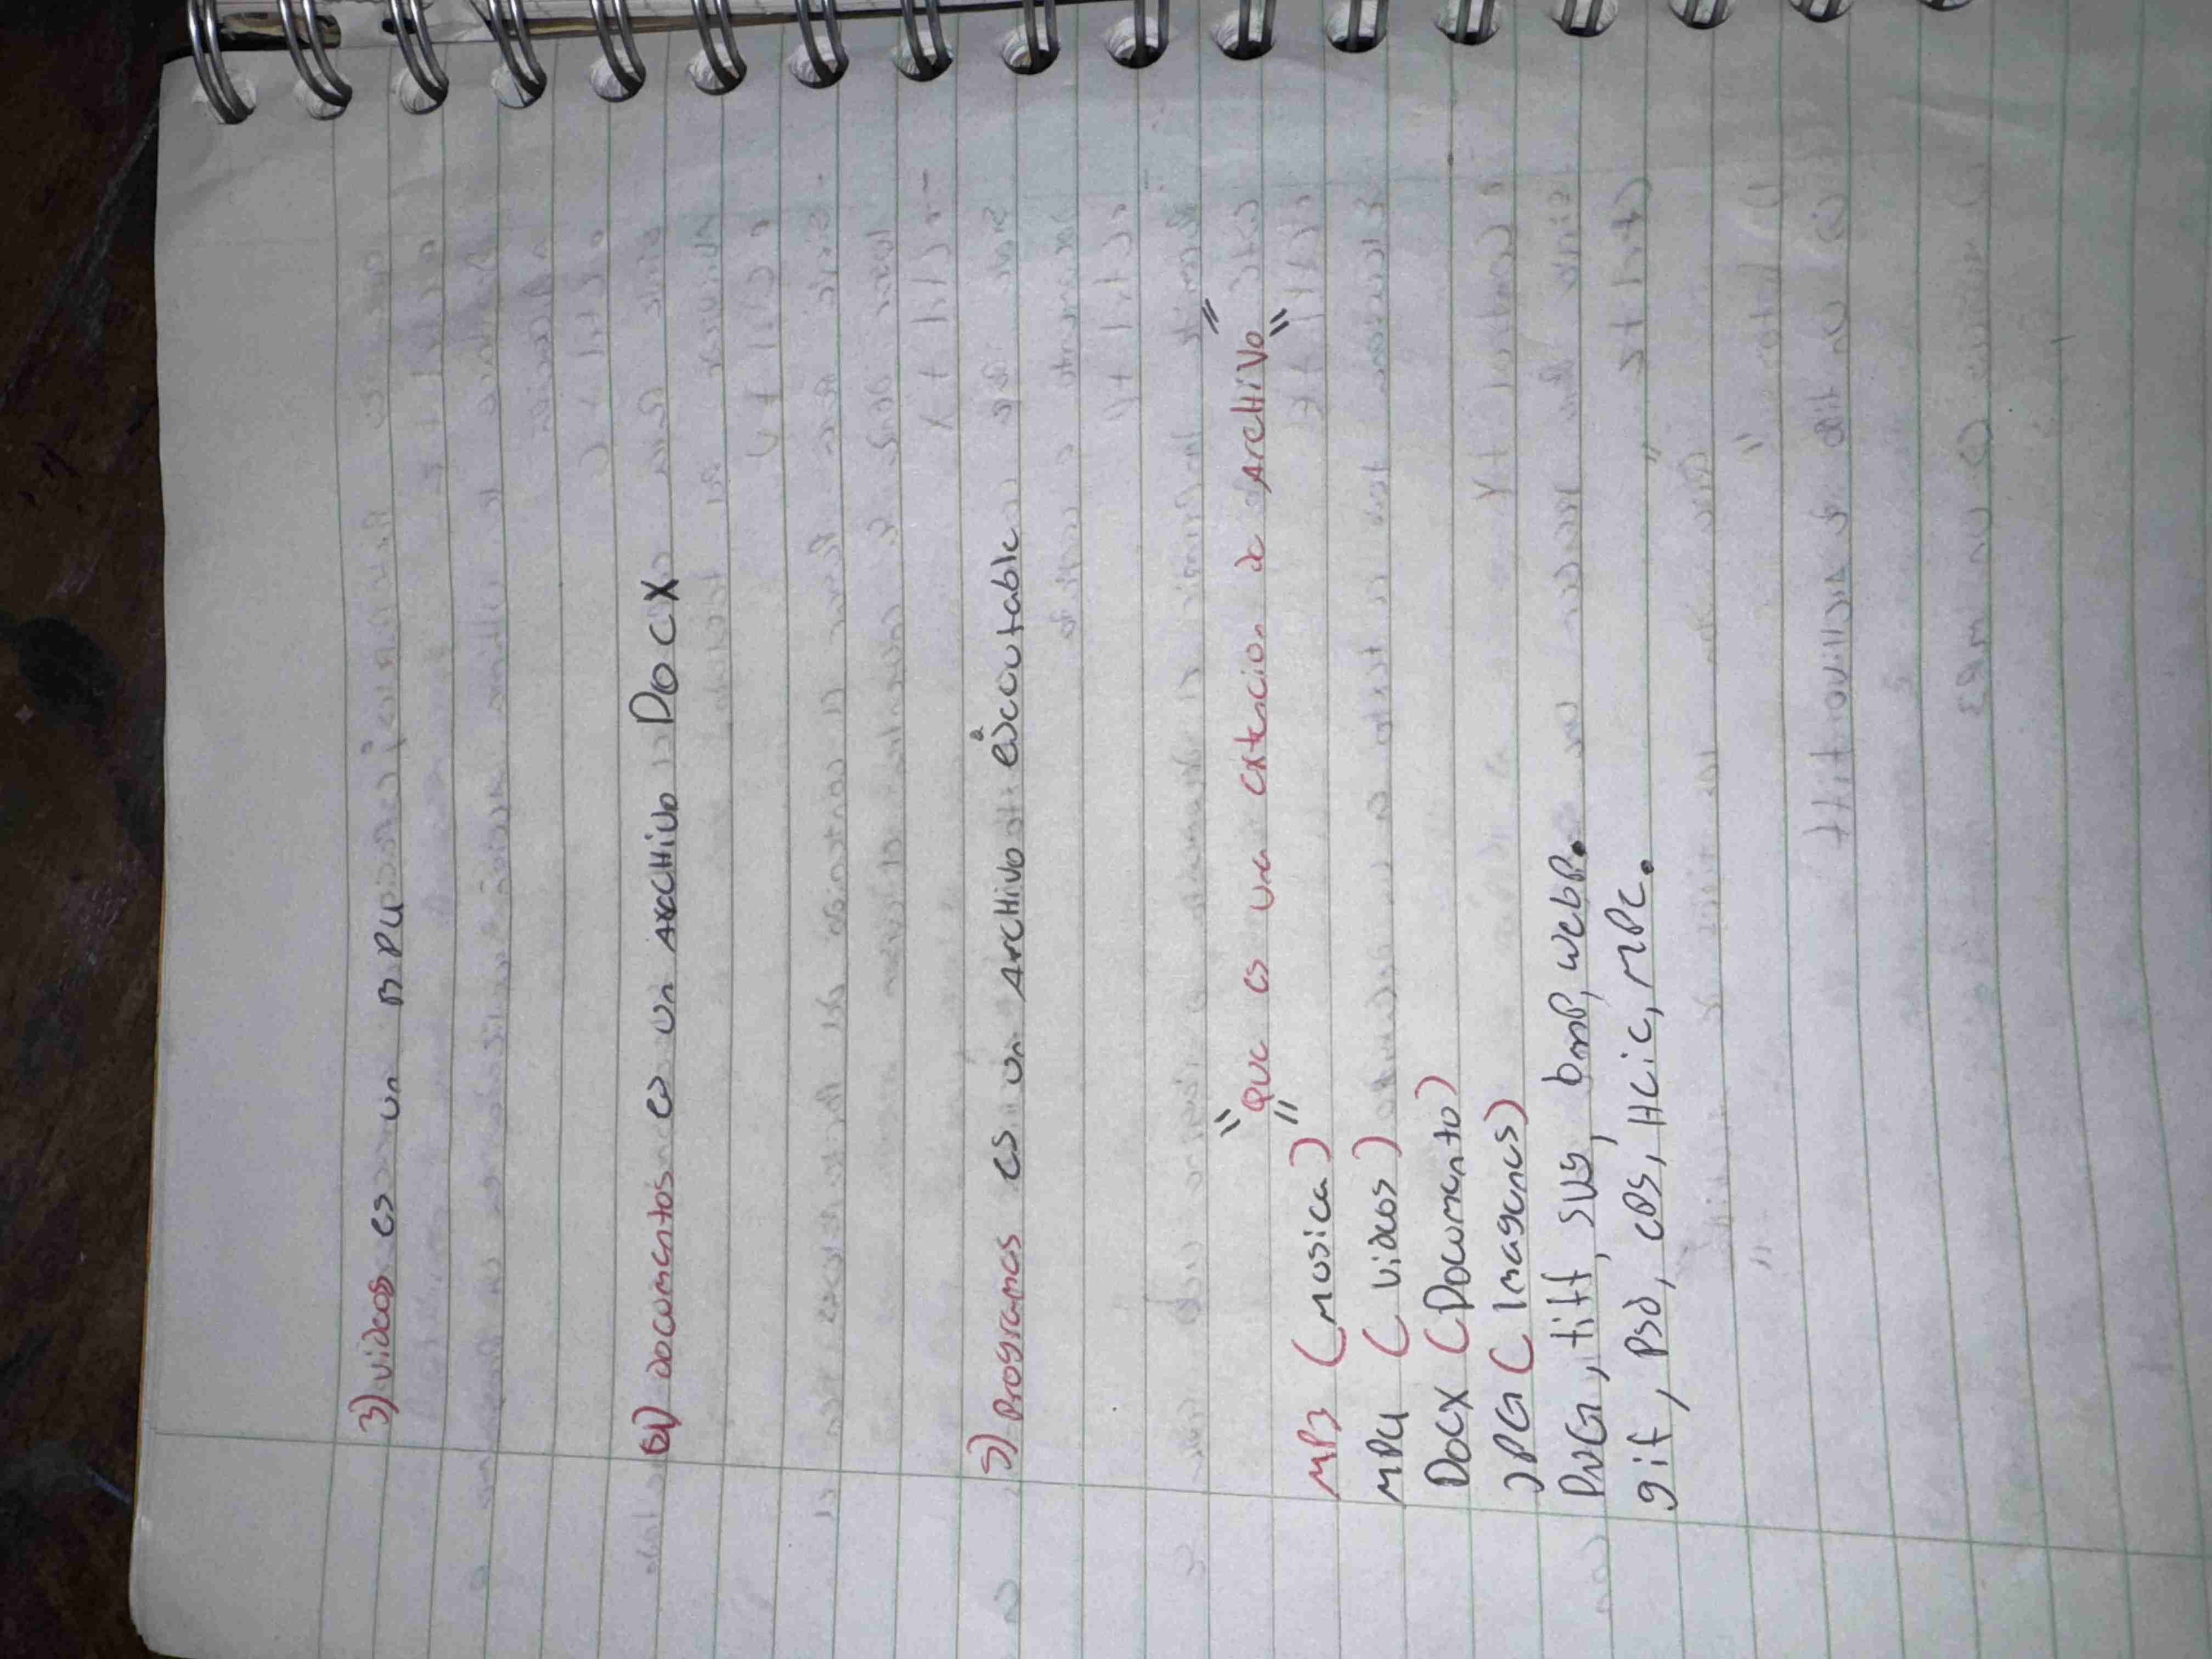 3) videos es un MP4
4) documentos es un Archivo DOCX
5) Programas es un Archivo ejecutable
"Que es una extencion de Archivo"
MP3 (musica)
MP4 (videos)
Docx (Documento)
JPG (Imagenes)
PNG, tiff, svg, bmp, webp.
gif, Psd, eps, Heic, MPC.